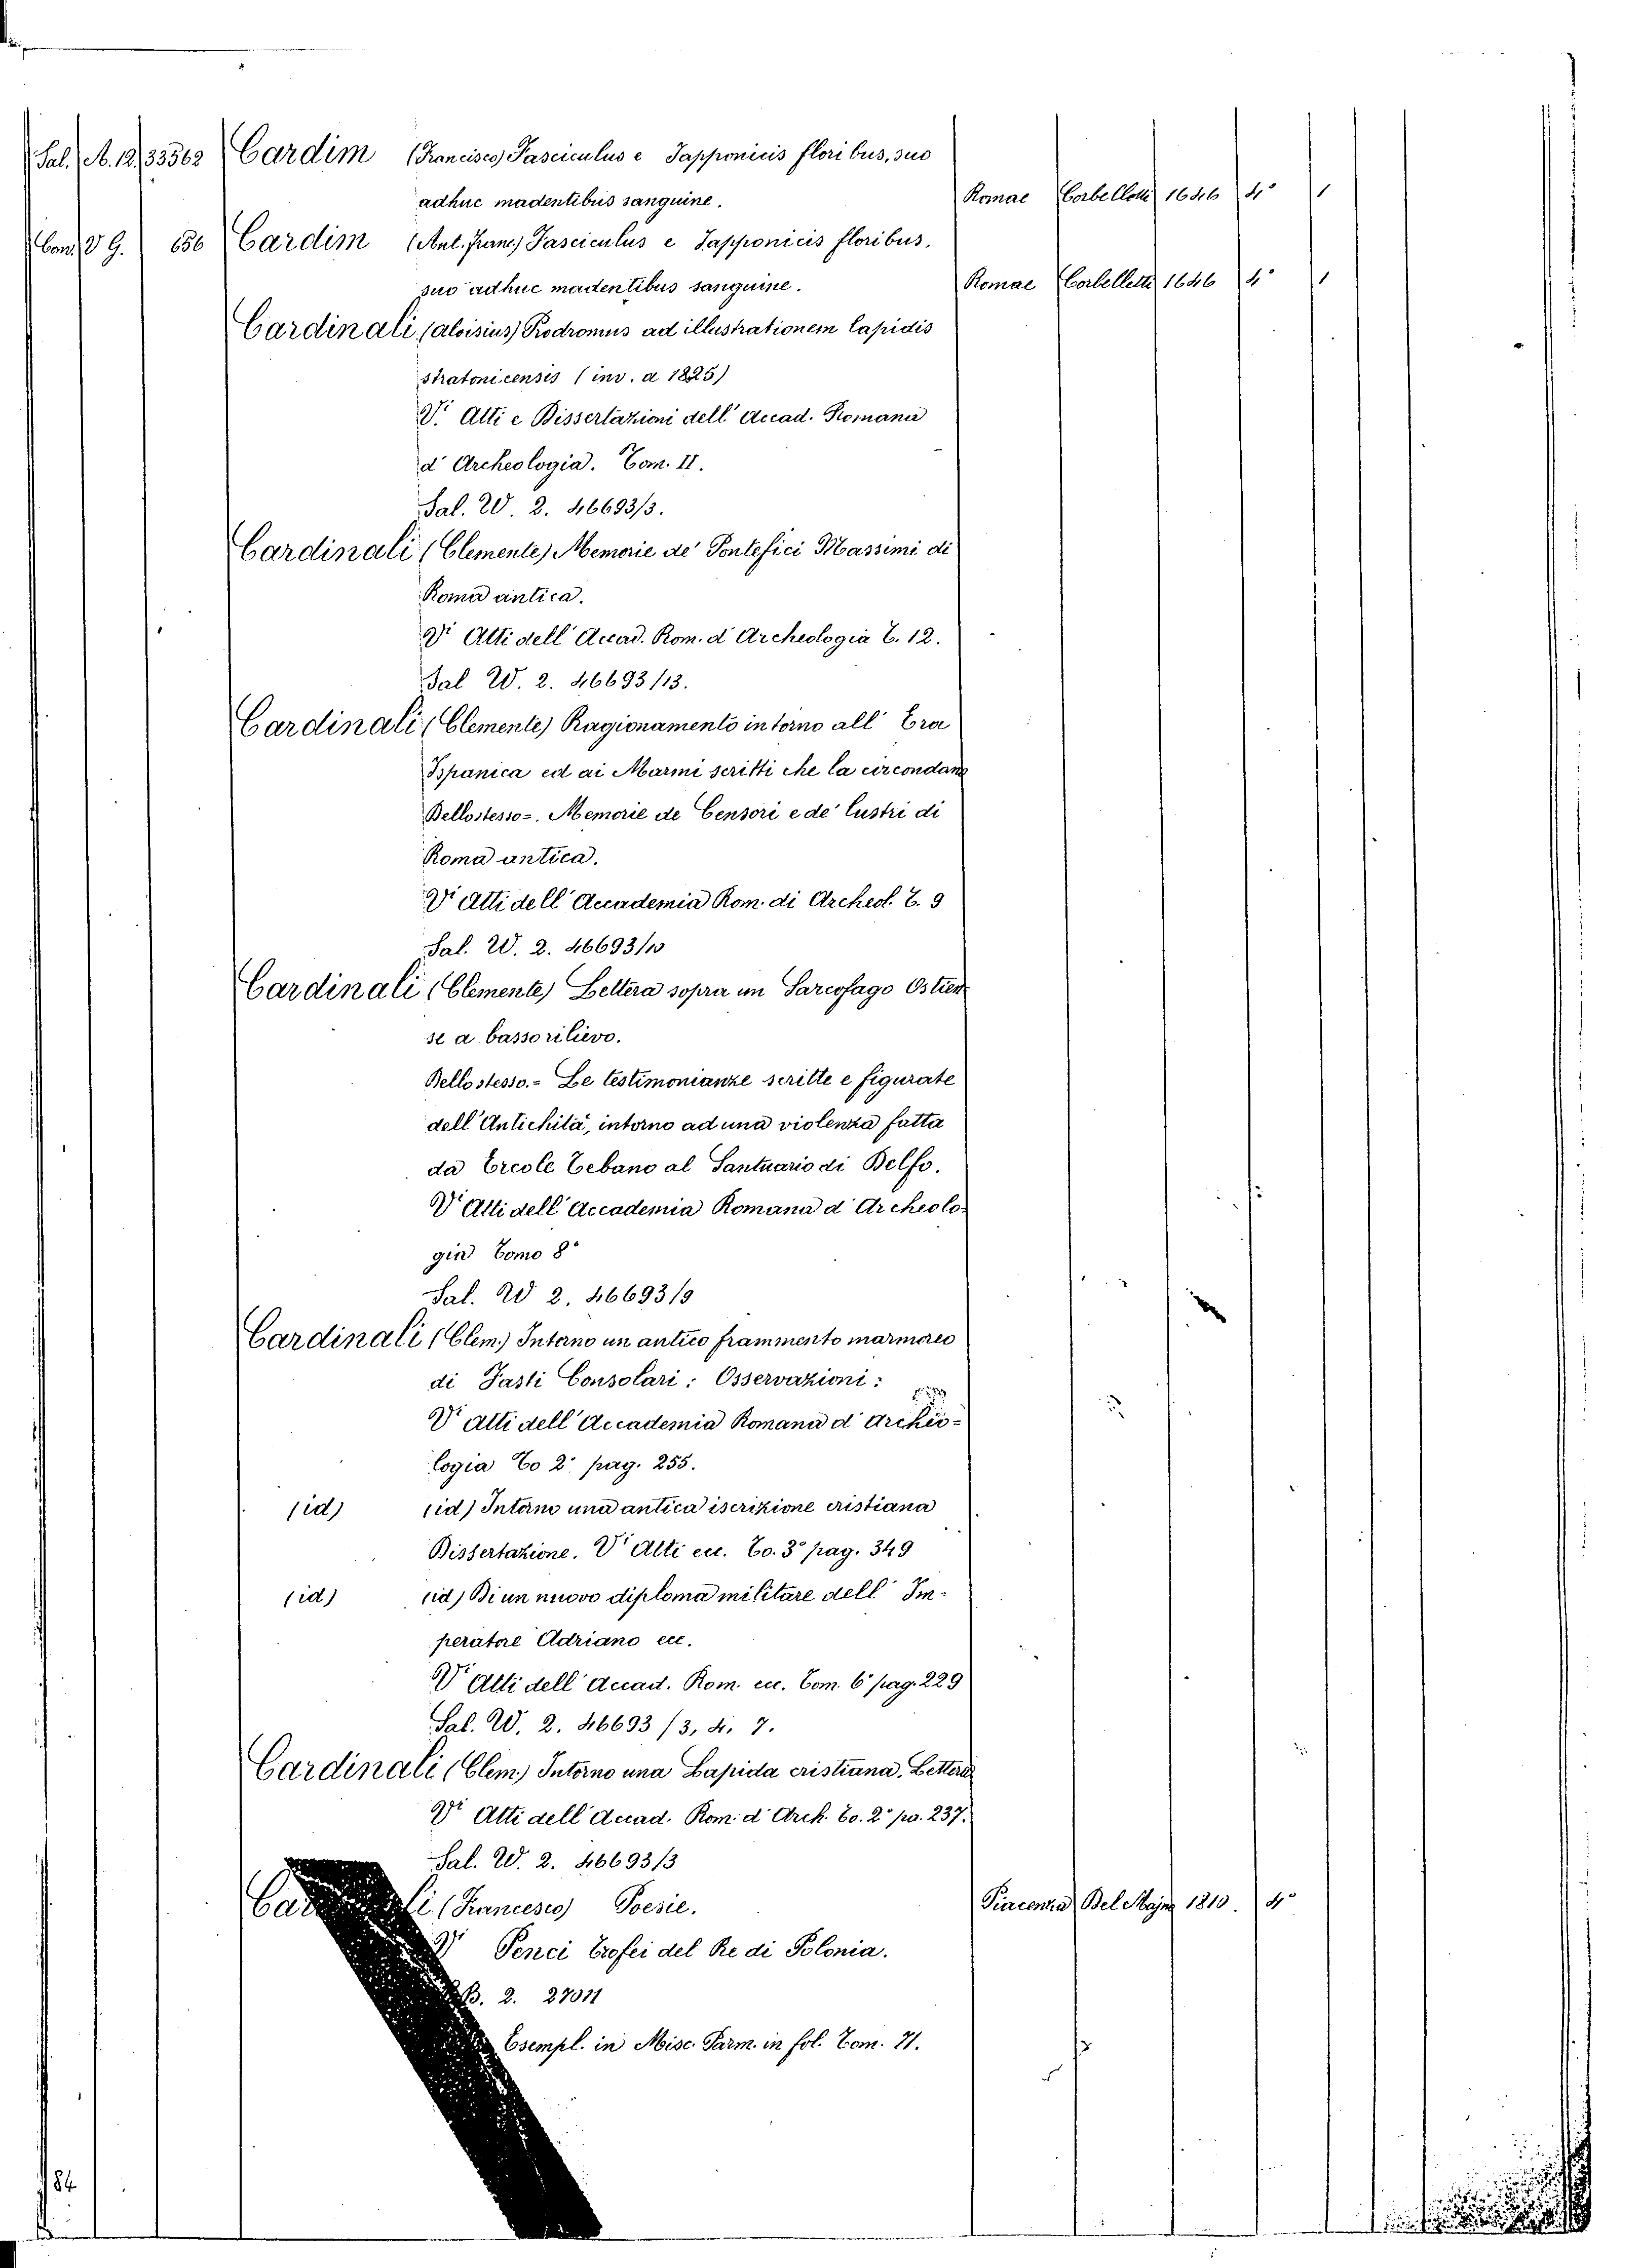 Sal. A. 12 33562 Cardim (Francisco) Fasciculus e Japponicis floribus, suo
adhuc madentibus sanguine. Romae Corbelletti 1646 4° 1
Con. V G. 656 Cardim (Ant. Franc) Fasciculus e Japponicis floribus,
suo adhuc madentibus sanguine. Romae Corbelletti 1646 4° 1
Cardinali (Aloisius) Prodromus ad illustrationem lapidis
stratonicensis (inv. a 1825)
V. Atti e Dissertazioni dell' Accad. Romana
d' Archeologia. Tom. II.
Sal. W. 2. 46693/3.
Cardinali (Clemente) Memorie de' Pontefici Massimi di
Roma antica.
Vi Atti dell' Accad. Rom. d' Archeologia T. 12.
Sal W. 2. 46693/13.
Cardinali (Clemente) Ragionamento intorno all' Era
Ispanica ed ai Marmi scritti che la circondano
Dello stesso =. Memorie de Censori e de' lustri di
Roma antica.
Vi Atti dell' Accademia Rom. di Archeol. T. 9
Sal. W. 2. 46693/10
Cardinali (Clemente) Lettera sopra un Sarcofago Ostien
se a bassorilievo.
Dello stesso. = Le testimonianze scritte e figurate
dell' Antichità, intorno ad una violenza fatta
da Ercole Tebano al Santuario di Delfo.
Vi Atti dell' Accademia Romana d' Archeolo-
gia Tomo 8°
Sal. W 2. 46693/9
Cardinali (Clem.) Intorno un antico frammento marmoreo
di Fasti Consolari: Osservazioni:
Vi Atti dell' Accademia Romana d' Archeo-
logia To 2° pag. 255.
(id) (id) Intorno una antica iscrizione cristiana
Dissertazione. Vi Atti ecc. To. 3° pag. 349
(id) (id) Di un nuovo diploma militare dell' Im-
peratore Adriano ecc.
Vi Atti dell' Accad. Rom. ecc. Tom. 6° pag. 229
Sal. W. 2. 46693/3, 4, 7.
Cardinali (Clem.) Intorno una Lapida cristiana. Lettera
Vi Atti dell' Accad. Rom. d' Arch. To. 2° pa. 237.
Sal. W. 2. 46693/3
(Francesco) Poesie. Piacenza Del Majno 1810. 4°
V Penci Trofei del Re di Polonia.
B. 2. 27011
Esempl. in Misc. Parm. in fol. Tom. 71.
84